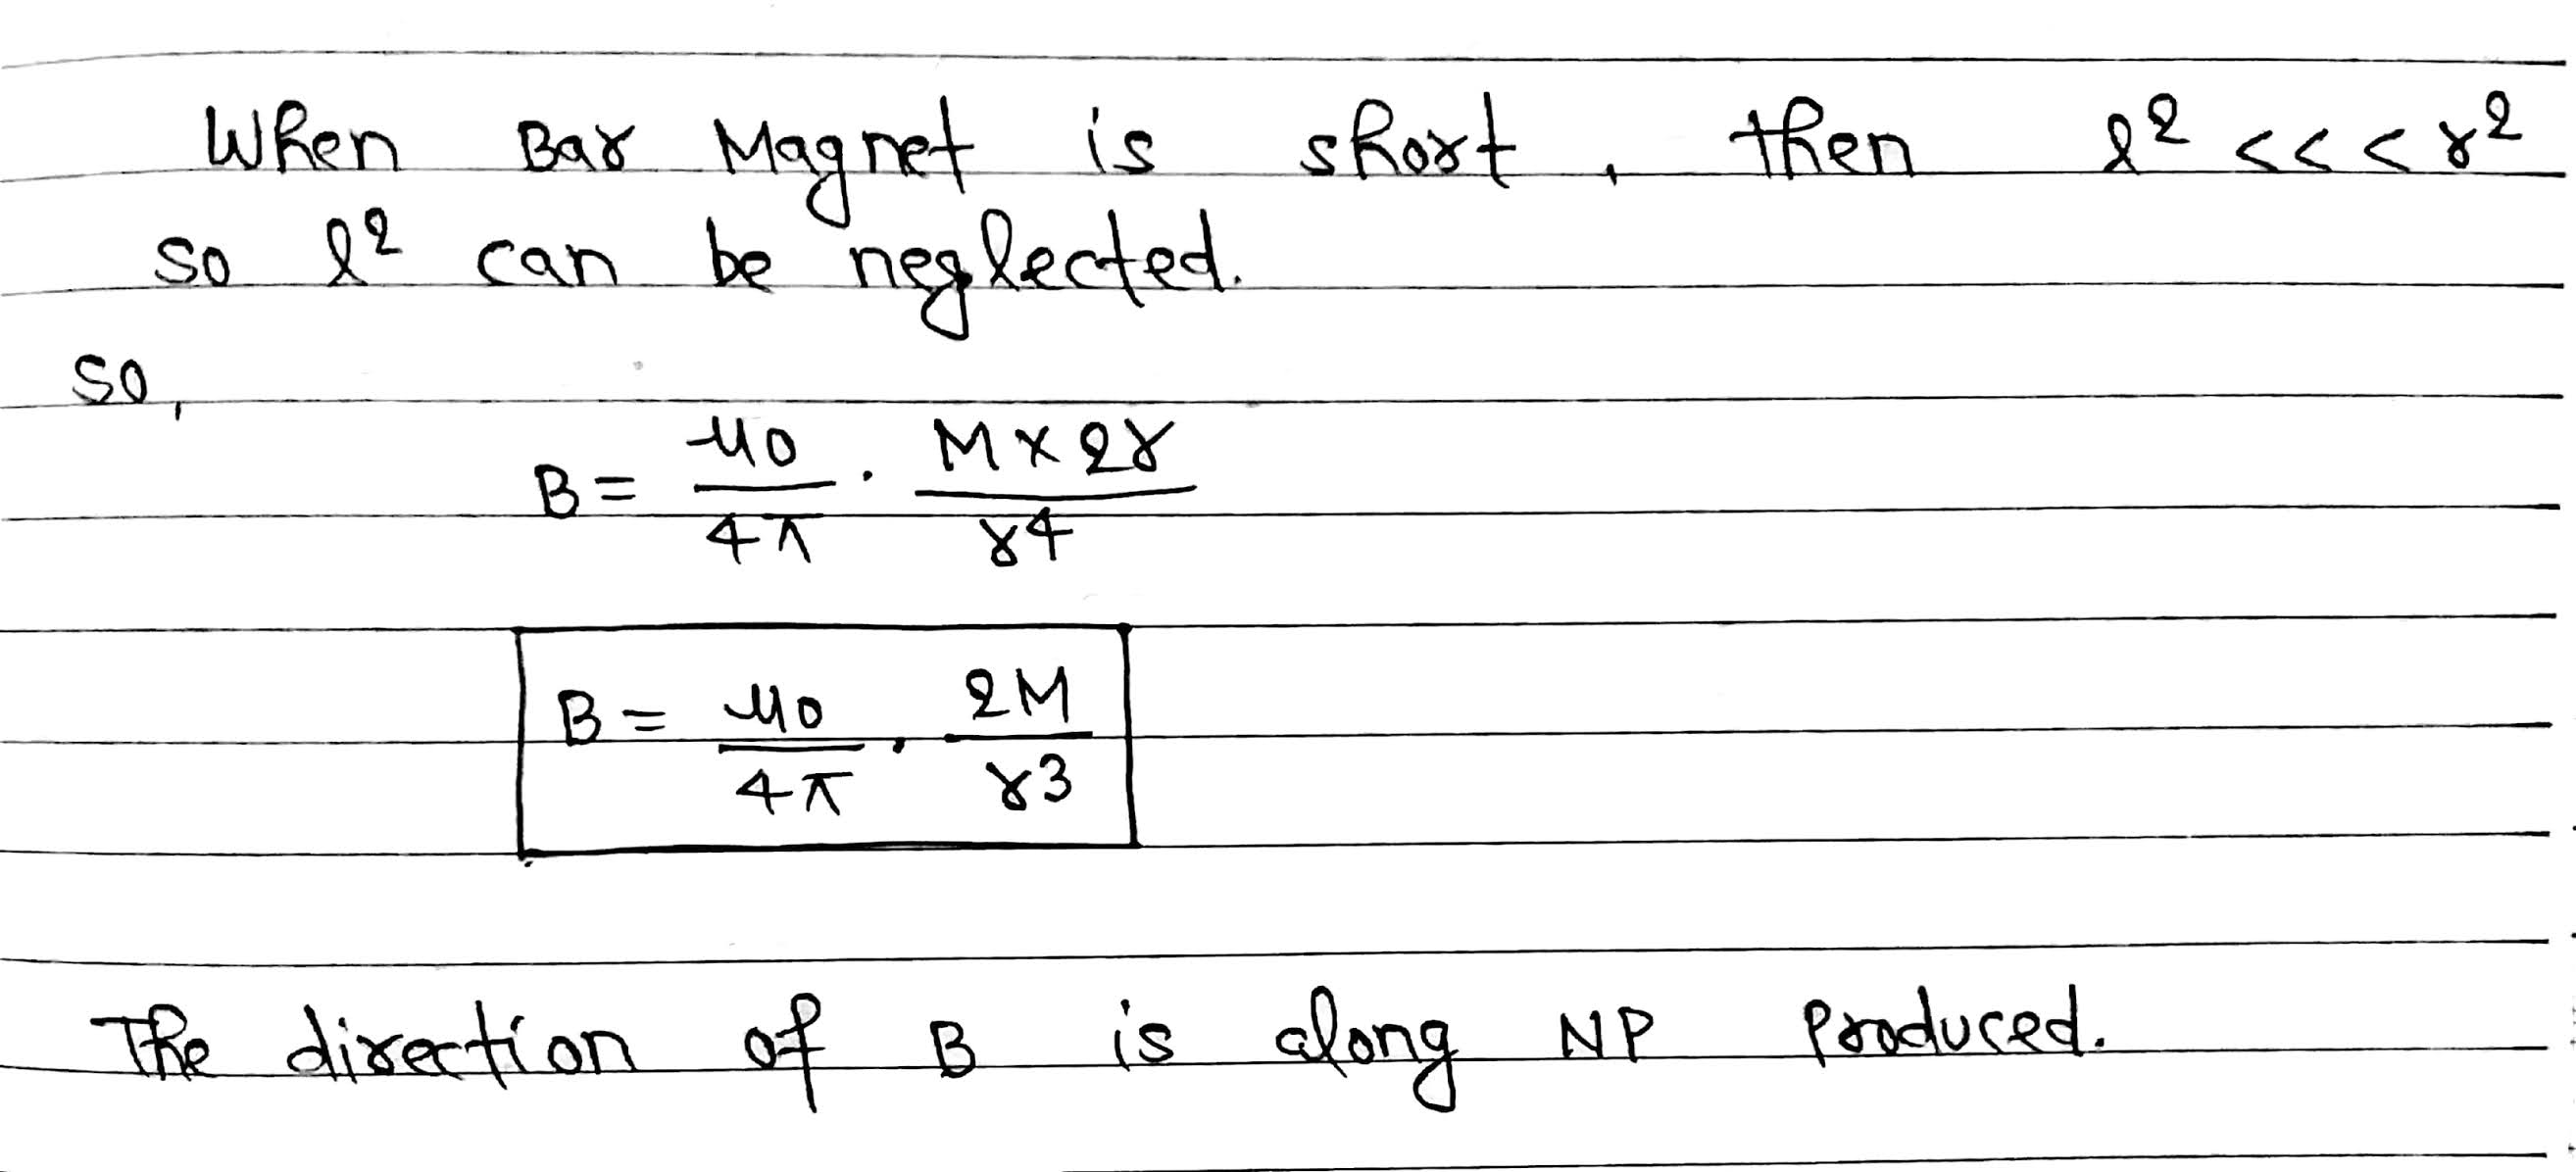 When Bar Magnet is short, then l² <<< r²
so l² can be neglected.
so,
B = μ0/4π . M×2r/r4
B = μ0/4π . 2M/r3
The direction of B is along NP Produced.